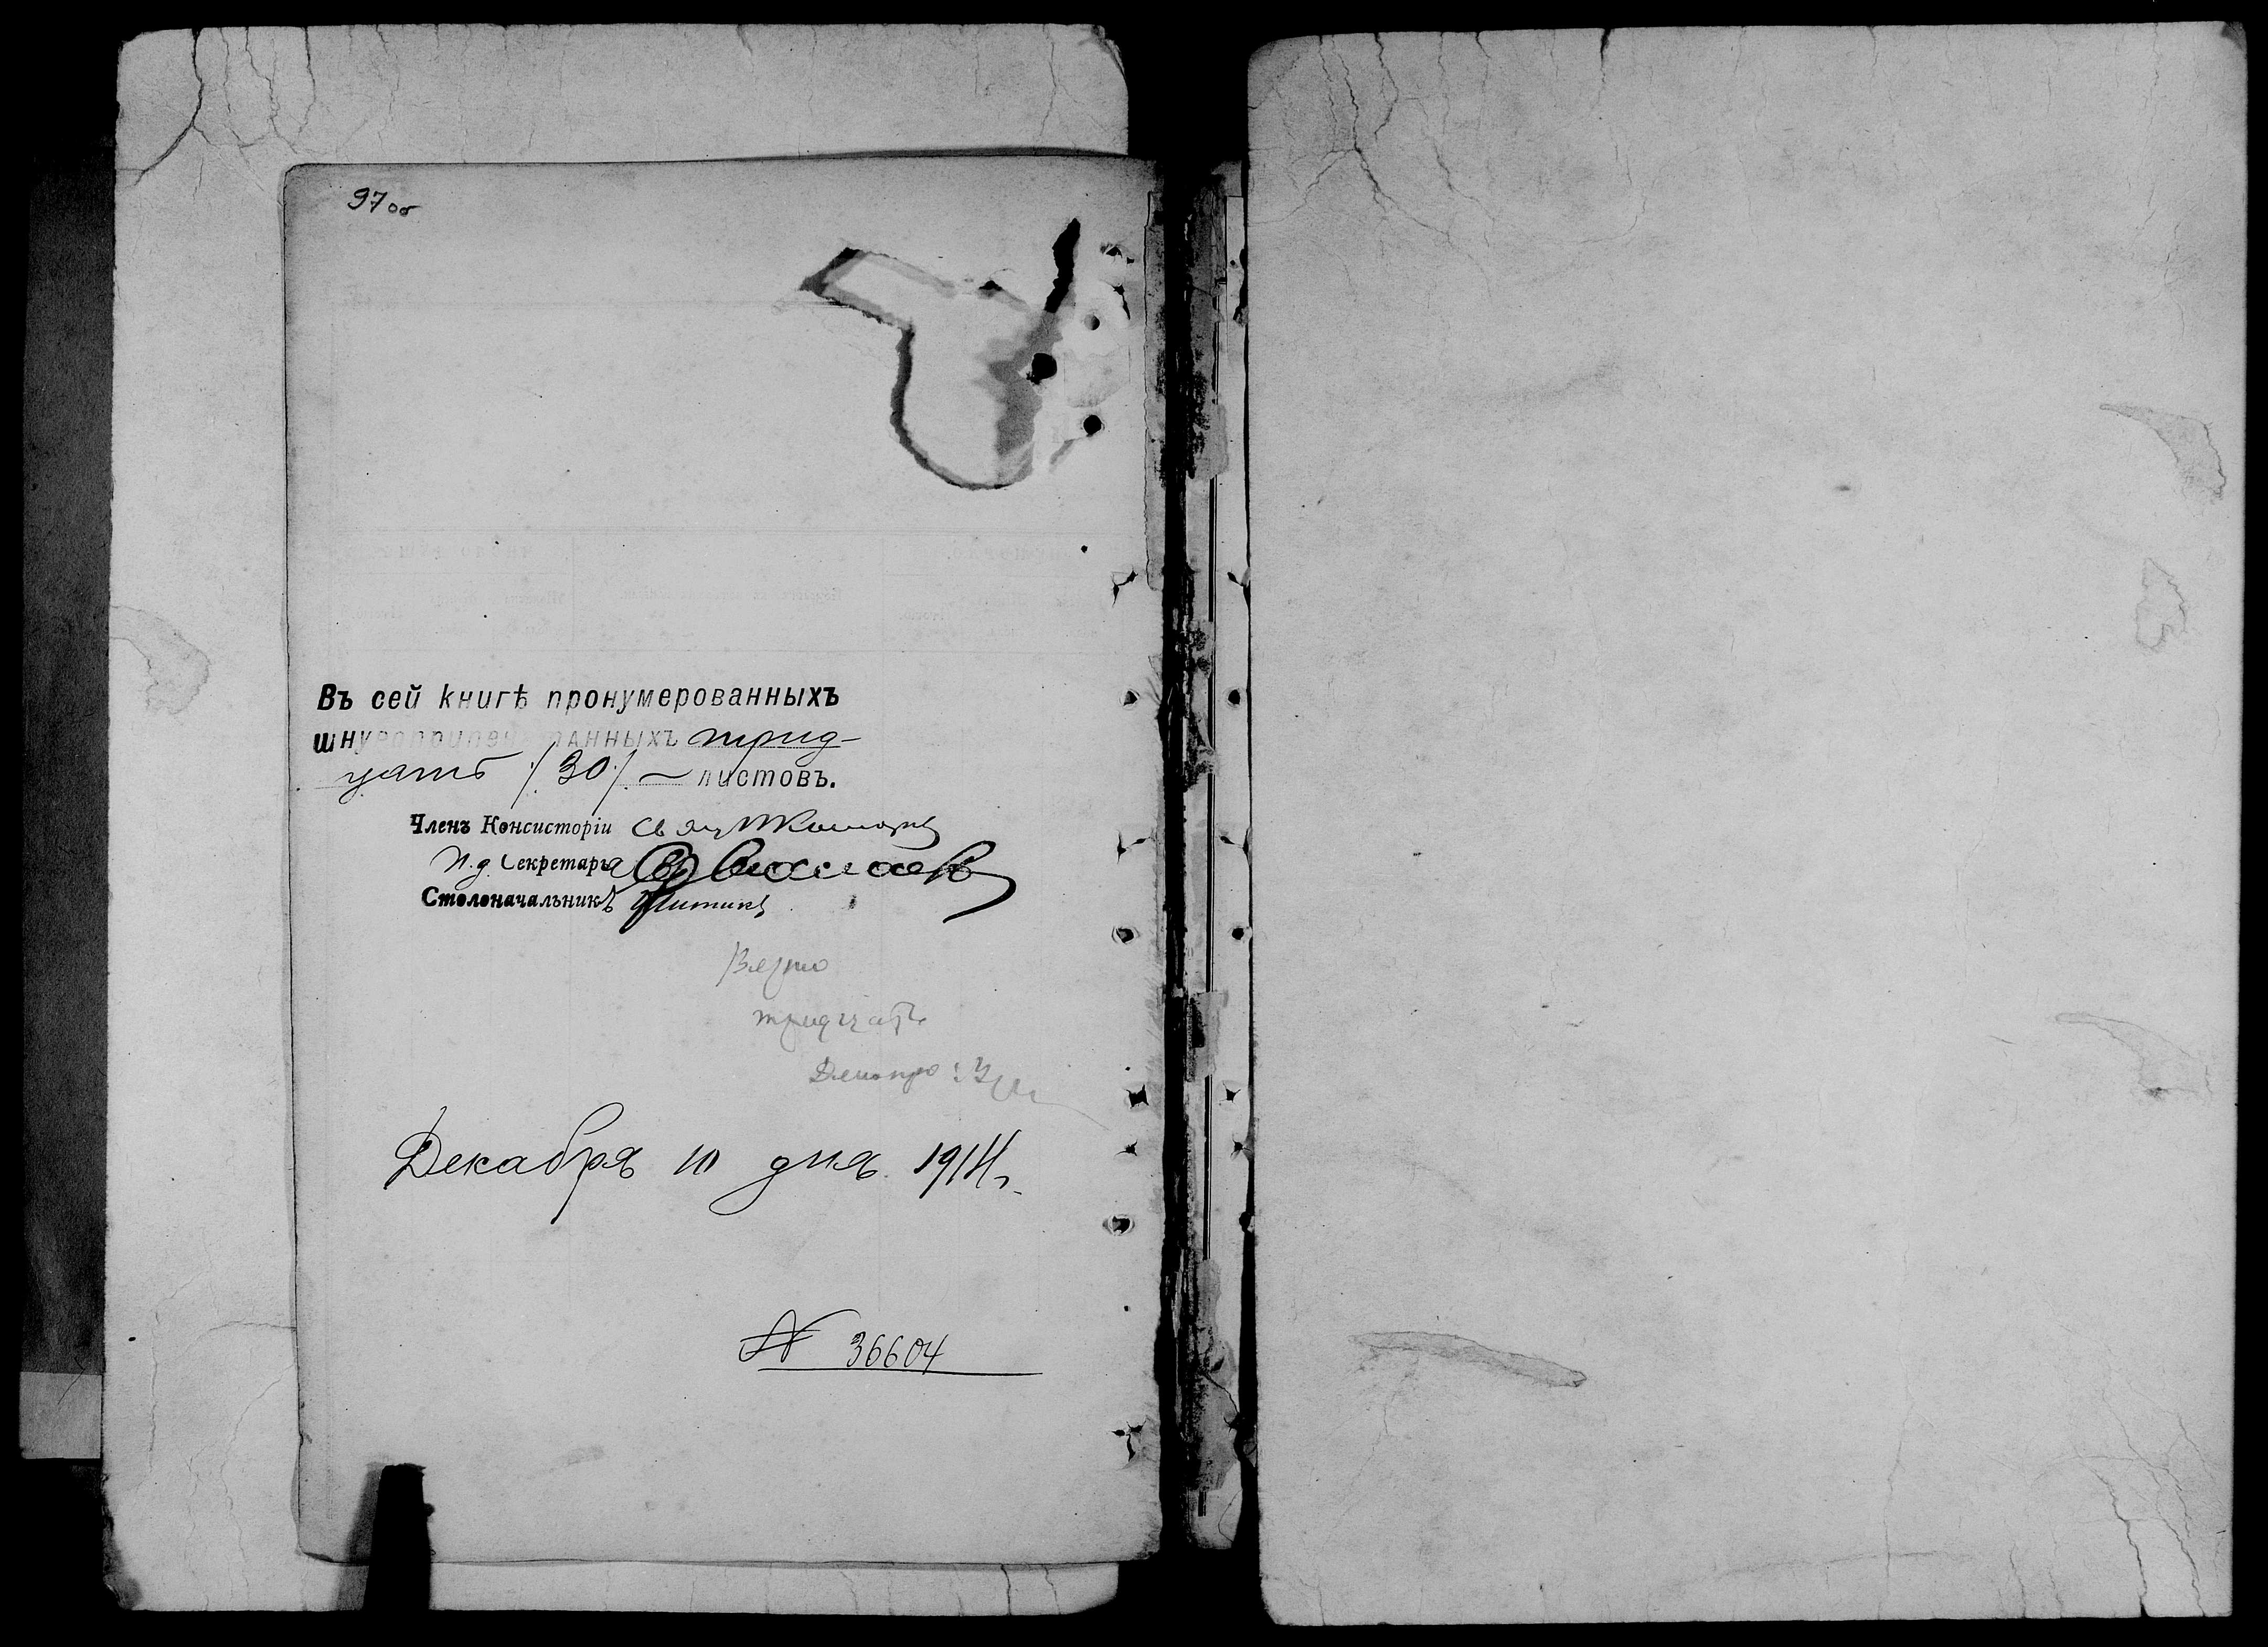 97об
Въ сей книгѣ пронумерованныхъ
шнуроприпечатанныхъ трид-
цать /30/ — листовъ.
Членъ Консисторіи Свящ
И.д. Секретаря
Столоначальникъ
Верно
тридцать
Декабря 10 дня 1914 г.
№ 36604